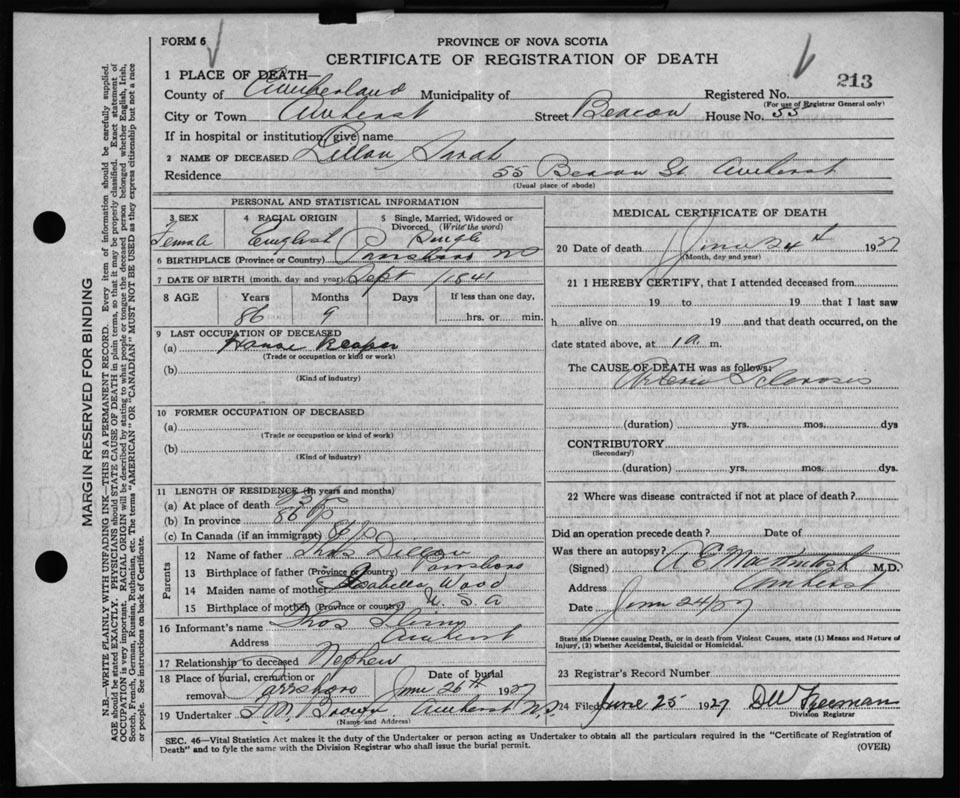 FORM 6
PROVINCE OF NOVA SCOTIA
CERTIFICATE OF REGISTRATION OF DEATH
213
1 PLACE OF DEATH—
County of Cumberland Municipality of Registered No.
(For use of Registrar General only)
City or Town Amherst Street Beacon House No. 55
If in hospital or institution, give name
2 NAME OF DECEASED Dillon Sarah
Residence 55 Beacon St. Amherst
(Usual place of abode)
PERSONAL AND STATISTICAL INFORMATION
3 SEX Female
4 RACIAL ORIGIN English
5 Single, Married, Widowed or Divorced (Write the word) Single
6 BIRTHPLACE (Province or Country) Parrsboro NS
7 DATE OF BIRTH (month, day and year) Sept 1841
8 AGE Years Months Days If less than one day,
86 9 hrs. or min.
9 LAST OCCUPATION OF DECEASED
(a) House Keeper
(Trade or occupation or kind or work)
(b)
(Kind of industry)
10 FORMER OCCUPATION OF DECEASED
(a)
(Trade or occupation or kind of work)
(b)
(Kind of industry)
11 LENGTH OF RESIDENCE (In years and months)
(a) At place of death
(b) In province 86
(c) In Canada (if an immigrant)
Parents
12 Name of father Thos Dillon
13 Birthplace of father (Province or country) Parrsboro
14 Maiden name of mother Isabella Wood
15 Birthplace of mother (Province or country) U.S.A
16 Informant's name Thos
Address Amherst
17 Relationship to deceased Nephew
18 Place of burial, cremation or removal Parrsboro Date of burial June 26th 1927
19 Undertaker Brown Amherst N.S.
(Name and Address)
MEDICAL CERTIFICATE OF DEATH
20 Date of death June 24th 1927
(Month, day and year)
21 I HEREBY CERTIFY, that I attended deceased from
19 to 19 that I last saw
h alive on 19 and that death occurred, on the
date stated above, at 1 a. m.
The CAUSE OF DEATH was as follows:
Arterio Sclerosis
(duration) yrs. mos. dys
CONTRIBUTORY
(Secondary)
(duration) yrs. mos. dys.
22 Where was disease contracted if not at place of death?
Did an operation precede death? Date of
Was there an autopsy?
(Signed) M.D.
Address Amherst
Date June 24/27
State the Disease causing Death, or in death from Violent Causes, state (1) Means and Nature of
Injury, (2) whether Accidental, Suicidal or Homicidal.
23 Registrar's Record Number
24 Filed June 25 1927 Freeman
Division Registrar
SEC. 46—Vital Statistics Act makes it the duty of the Undertaker or person acting as Undertaker to obtain all the particulars required in the "Certificate of Registration of
Death" and to fyle the same with the Division Registrar who shall issue the burial permit.
(OVER)
MARGIN RESERVED FOR BINDING
N.B.—WRITE PLAINLY WITH UNFADING INK—THIS IS A PERMANENT RECORD. Every item of information should be carefully supplied.
AGE should be stated EXACTLY. PHYSICIANS should STATE CAUSE OF DEATH in plain terms, so that it may be properly classified. Exact statement of
OCCUPATION is very important. RACIAL ORIGIN will be described by stating to what people or tongue the deceased person belonged whether English, Irish,
Scotch, French, German, Russian, Ruthenian, etc. The terms "AMERICAN" OR "CANADIAN" MUST NOT BE USED as they express citizenship but not a race
or people. See instructions on back of Certificate.